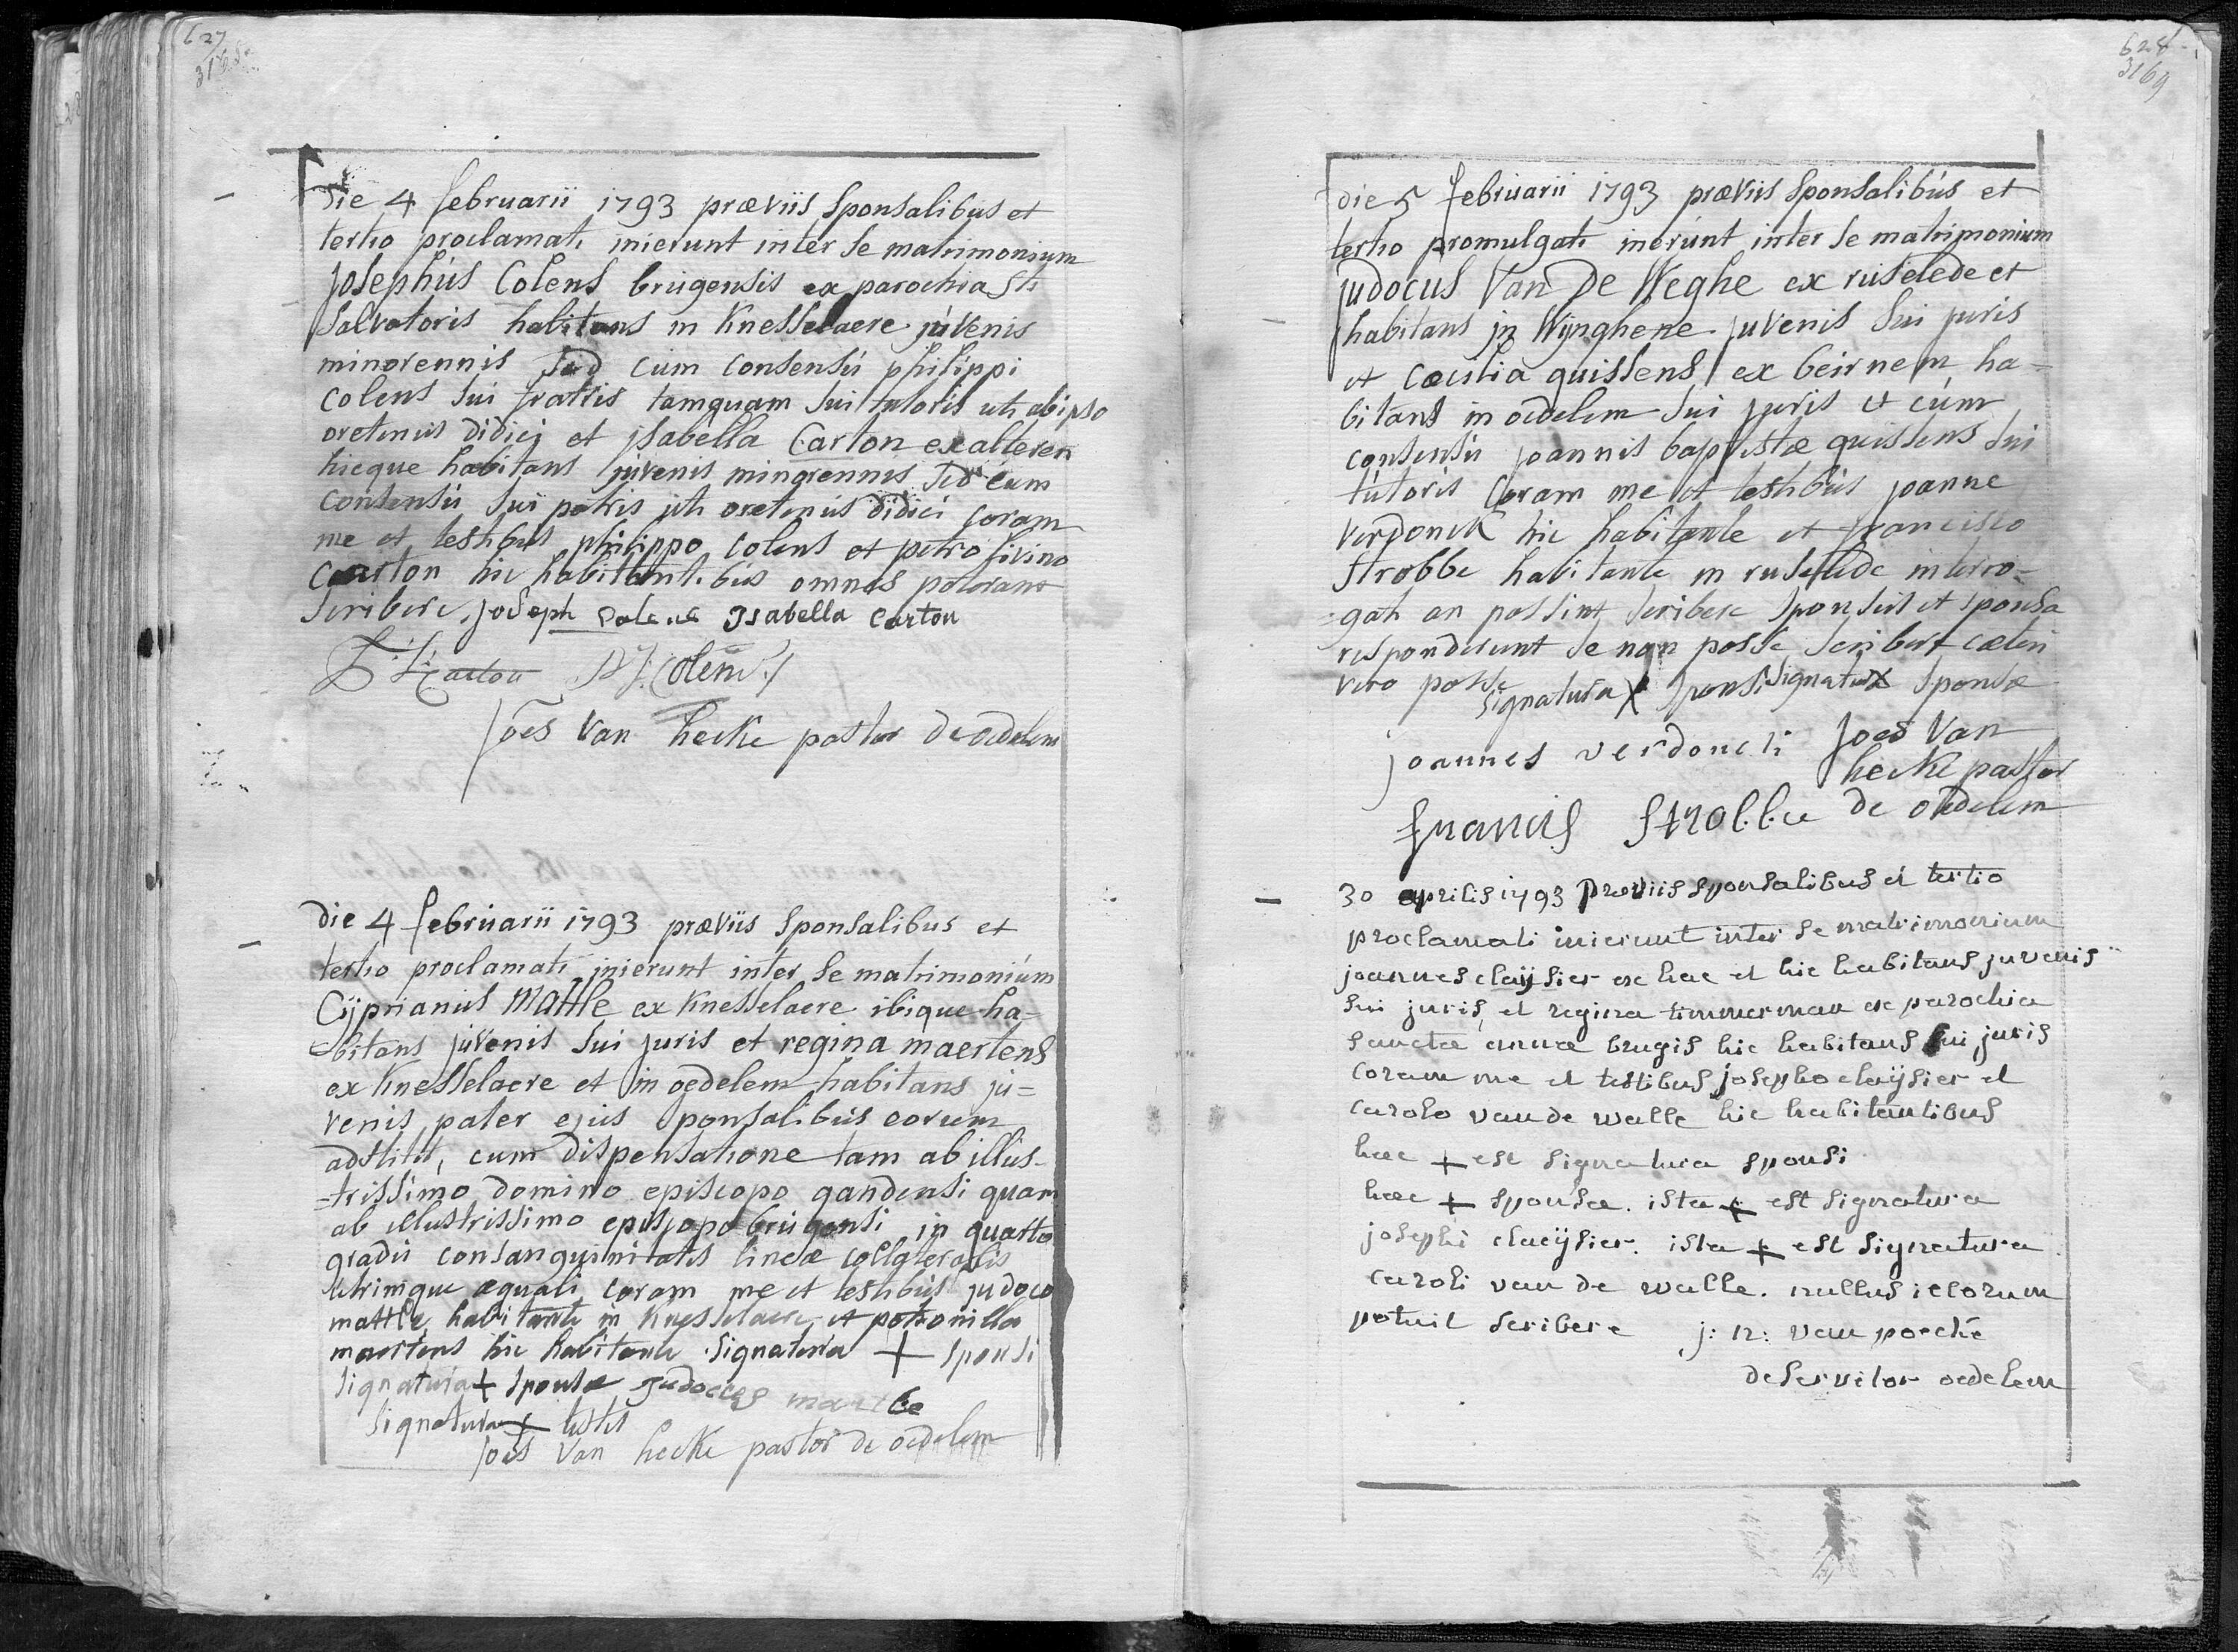 627
die 4 februarii 1793 præviis sponsalibus et
tertio proclamati inierunt inter se matrimonium
josephus Colens brugensis ex parochia Sti
Salvatoris habitans in Knesselaere juvenis
minorennis sed cum consensu philippi
colens sui fratris tamquam sui tutoris uti ab ipso
oretenus didici et jsabella Carton ex alteren
hicque habitans juvenis minorennis sed cum
consensu sui patris uti oretenus didici coram
me et testibus philippo colens et petro livino
Carton hic habitantibus omnes poterant
scribere. joseph Colens Isabella Carton
Carton Colens
joes Van hecke pastor de oedelem
die 4 februarii 1793 præviis sponsalibus et
tertio proclamati inierunt inter se matrimonium
Cijprianus Matthe ex Knesselaere ibique ha=
bitans juvenis sui juris et regina maertens
ex Knesselaere et in oedelem habitans ju=
venis, pater ejus sponsalibus eorum
adstitit, cum dispensatione tam ab illus-
=trissimo domino episcopo gandensi quam
ab illustrissimo episcopo brugensi in quarto
gradu consanguinitatis lineæ collateralis
utrimque æquali coram me et testibus judoco
matthe habitante in Knesselaere et petronilla
maertens hic habitante signatura + sponsi
signatura + sponsæ judocus
signatura + testis
joes Van hecke pastor de oedelem
628
3169
die 5 februarii 1793 præviis sponsalibus et
tertio promulgati inierunt inter se matrimonium
judocus Van De Weghe ex ruiselede et
habitans jn Wijnghene juvenis sui juris
et cæcilia quissens ex beirnem ha=
bitans in oedelem sui juris et cum
consensu joannis baptistæ quissens sui
tutoris coram me et testibus joanne
verdonck hic habitante et francisco
strobbe habitante in ruiselede interro=
=gati an possint scribere sponsus et sponsa
responderunt se non posse scribere cæteri
vero posse
signatura X sponsi signatura X sponsæ
joannes verdonck joes Van
hecke pastor
francis strobbe de oedelem
30 aprilis 1793 præviis sponsalibus et tertio
proclamati inierunt inter se matrimonium
joannes claijsier ex hac et hic habitans juvenis
sui juris, et regina timmerman ex parochia
sanctæ annæ brugis hic habitans sui juris
coram me et testibus josepho claeijsier et
carolo vande walle hic habitantibus
hæc + est signatura sponsi
hæc + sponsæ. ista + est signatura
josephi claeijsier. ista + est signatura
caroli van de walle. nullus illorum
potuit scribere j: n: van poecke
deservitor oedelem